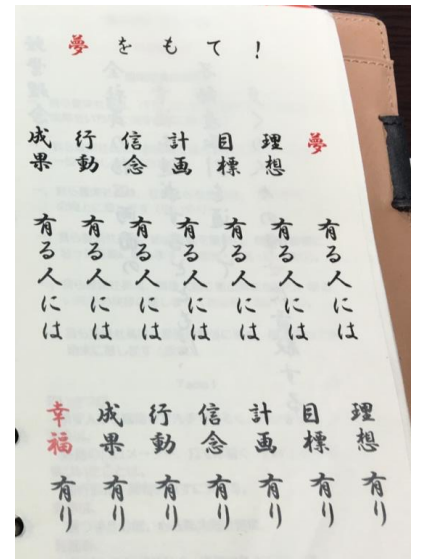 夢をもて!
夢有る人には理想有り
理想有る人には目標有り
目標有る人には計画有り
計画有る人には信念有り
信念有る人には行動有り
行動有る人には成果有り
成果有る人には幸福有り